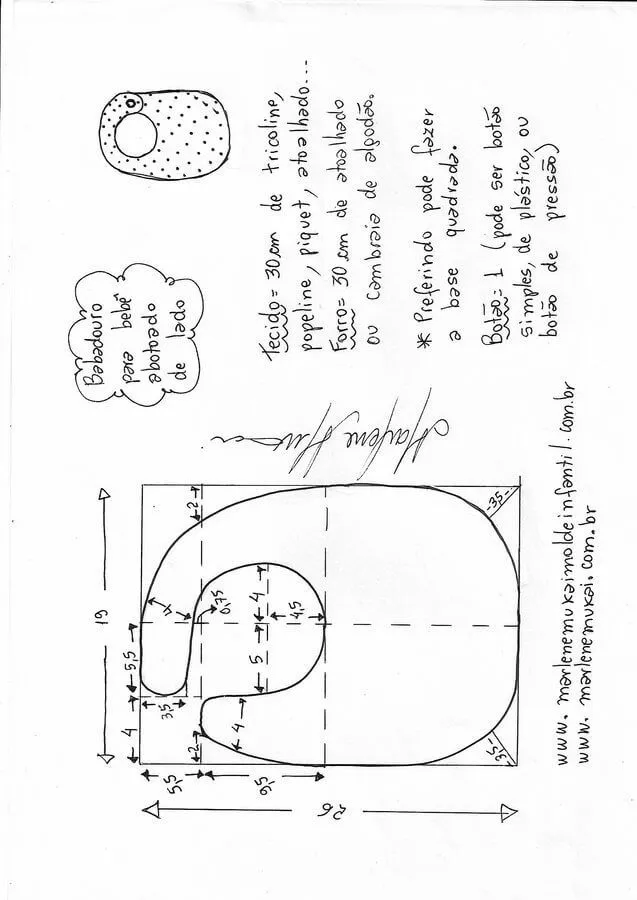 Babadouro
para bebê
abotoado
de lado
Tecido = 30 cm de tricoline,
popeline, piquet, atoalhado...
Forro = 30 cm de atoalhado
ou cambraia de algodão.
* Preferindo pode fazer
a base quadrada.
Botão = 1 (pode ser botão
simples, de plástico, ou
botão de pressão)
Marlene Mukai
19
4
5,5
2
3,5
4
2
0,75
4
5
4
4,5
5,5
9,5
26
3,5
3,5
www.marlenemukaimoldeinfantil.com.br
www.marlenemukai.com.br